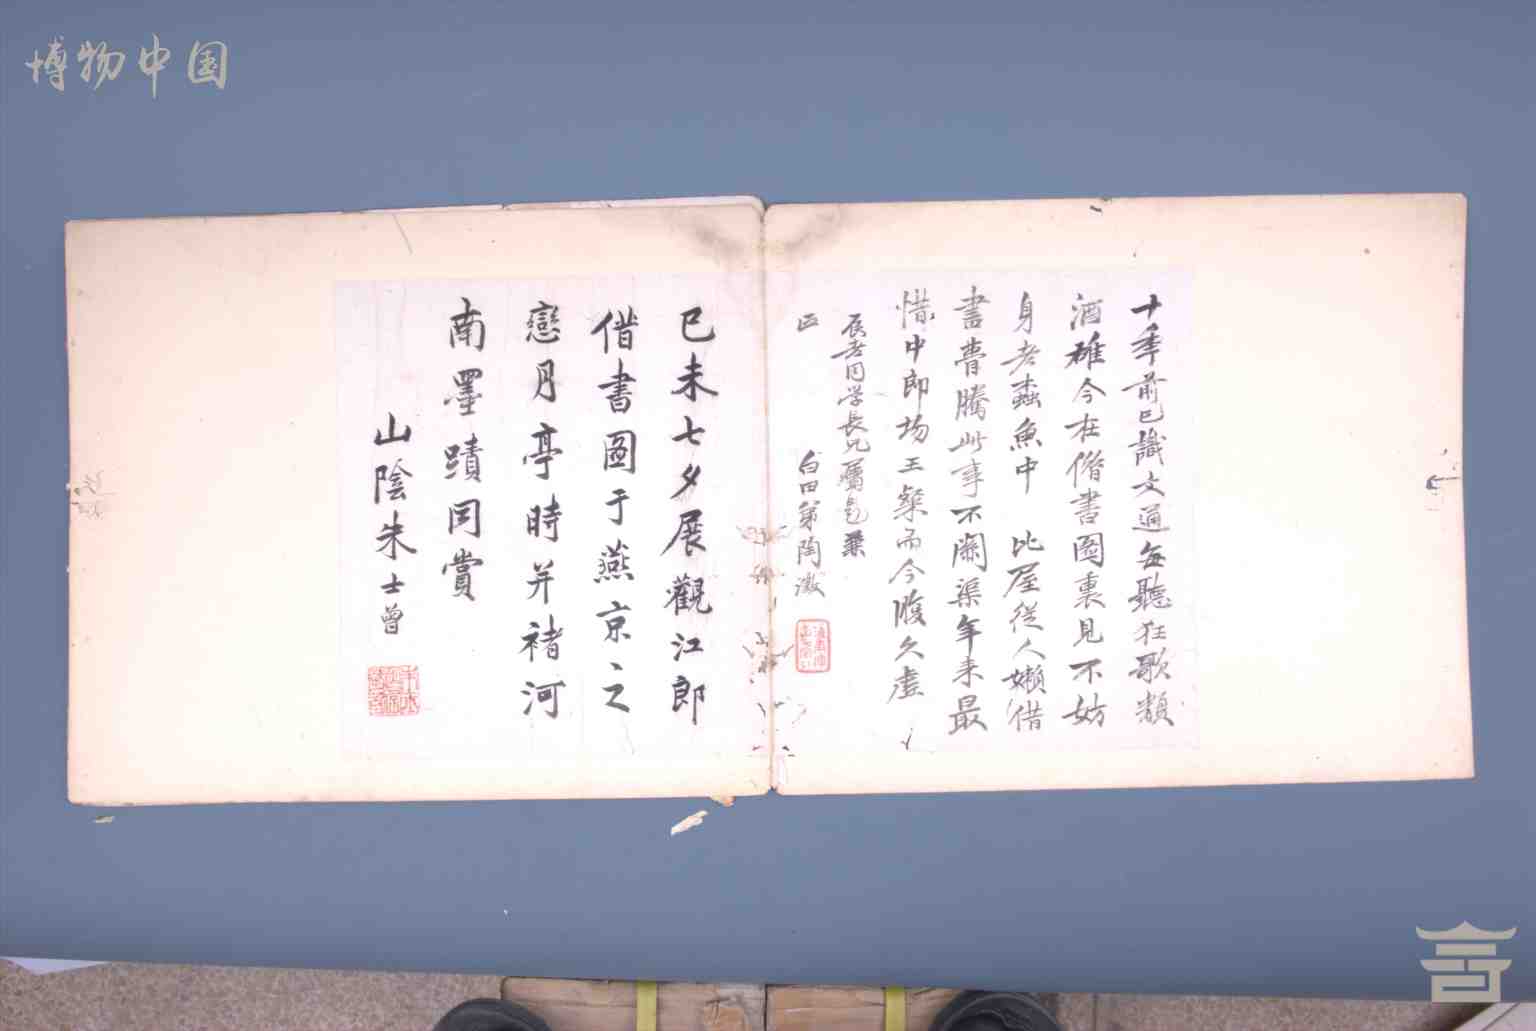 博物中国
十年前已識文通每聽狂歌類
酒雄今在借書圖裏見不妨
身老蠹魚中 比屋從人嬾借
書瞢騰此事不關渠年来最
惜中郎場王粲而今腹久虛
同学長兄屬題兼
正
白田弟陶澂
已未七夕展觀江郎
借書圖于燕京之
戀月亭時并褚河
南墨蹟同賞
山陰朱士曾